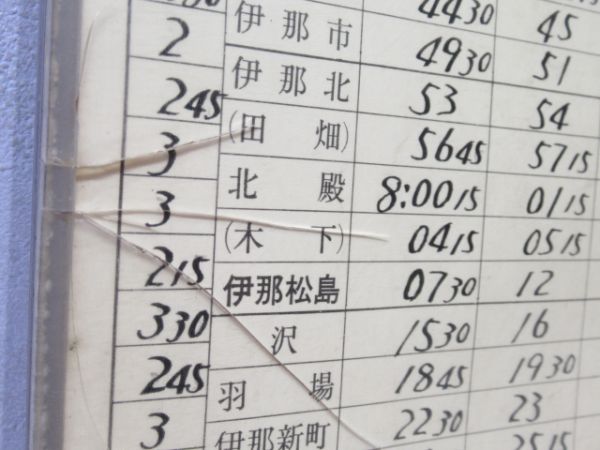 30 4430 45
2 伊那市 4930 51
245 伊那北 53 54
3 (田畑) 5645 5715
3 北殿 8:0015 0115
215 (木下) 0415 0515
330 伊那松島 0730 12
245 沢 1530 16
3 羽場 1845 1930
伊那新町 2230 23
2515